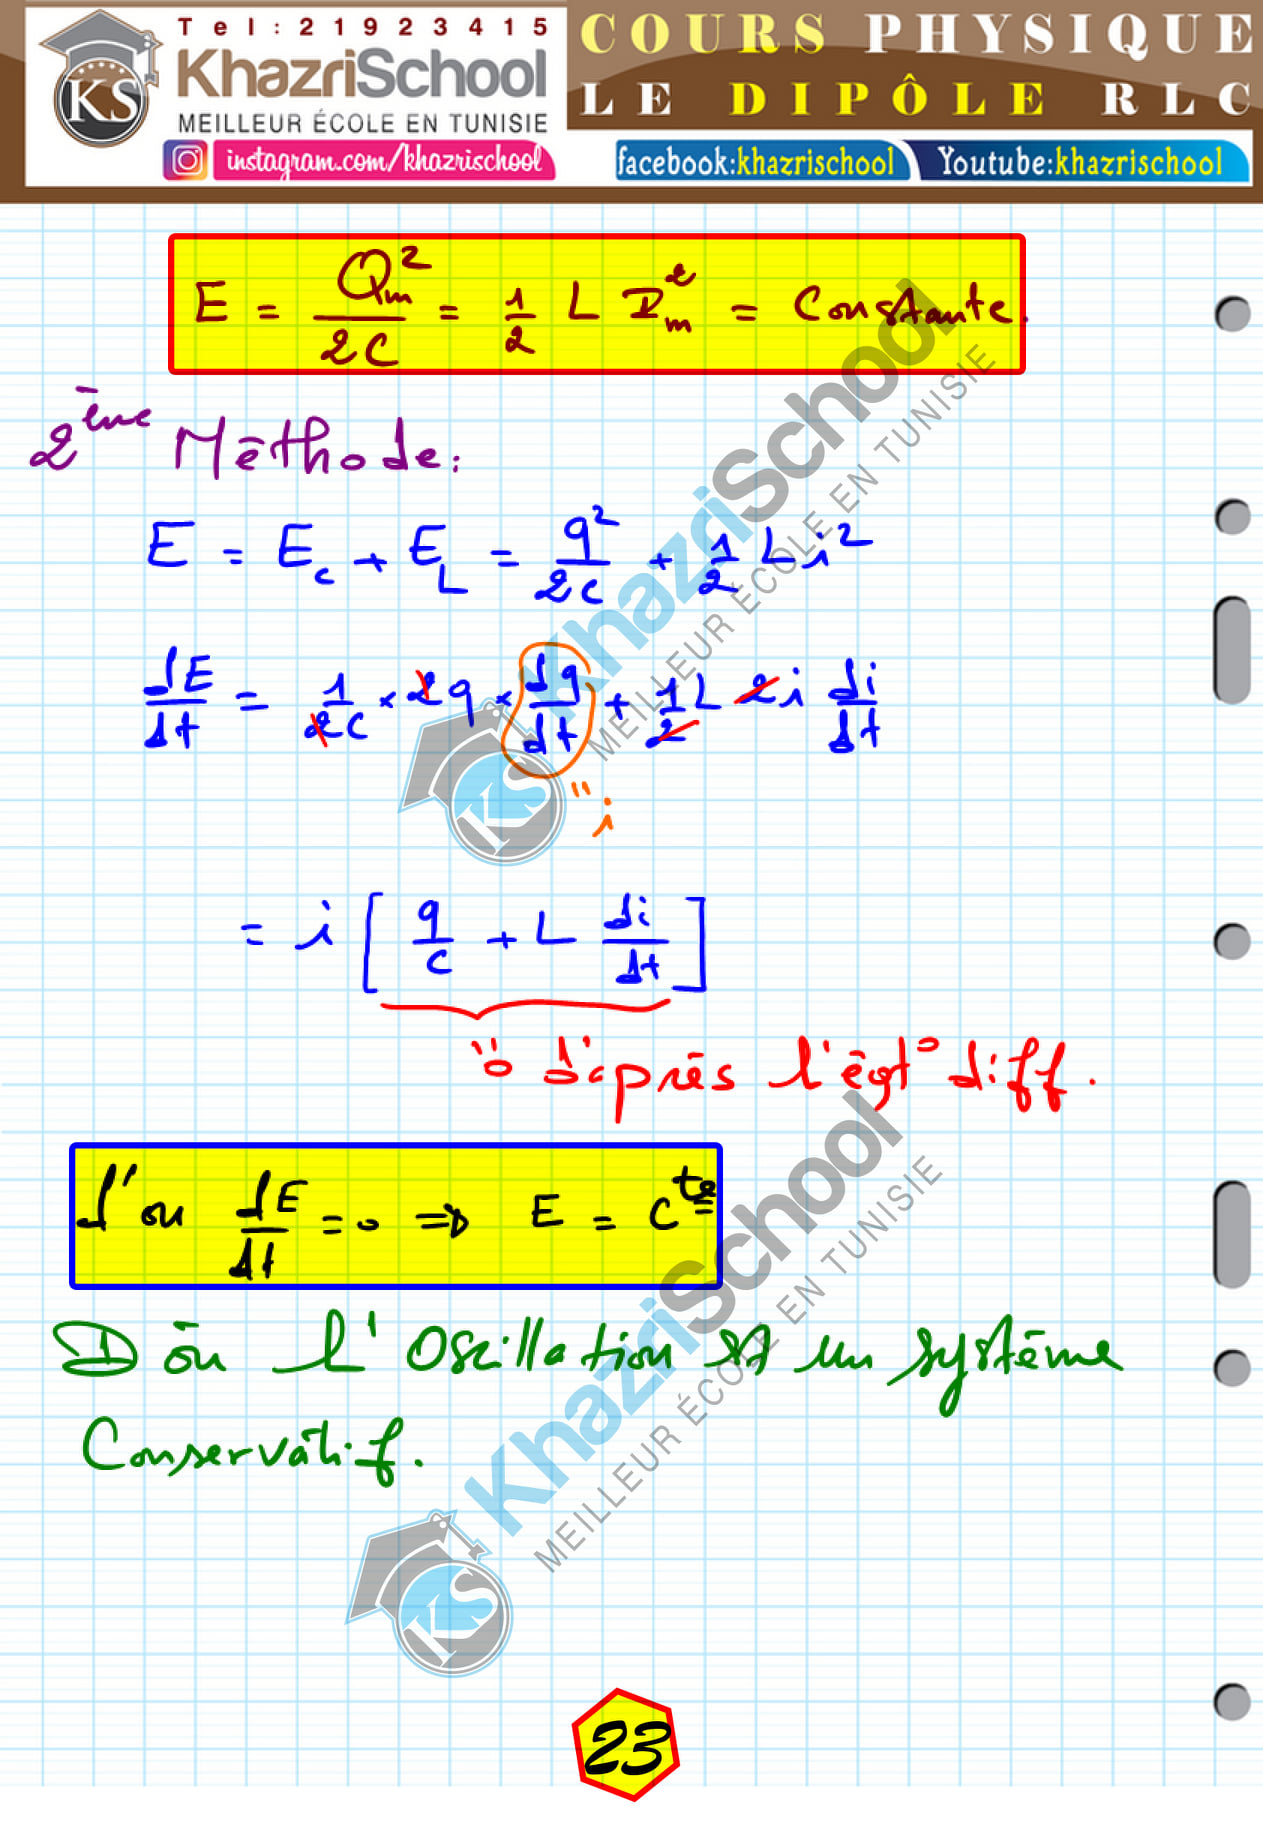 Tel:21923415
KhazriSchool
MEILLEUR ÉCOLE EN TUNISIE
KS
instagram.com/khazrischool
COURS PHYSIQUE
LE DIPÔLE RLC
facebook:khazrischool
Youtube:khazrischool
E = Qm²/2C = 1/2 L Im² = Constante.
2ème Méthode:
E = Ec + EL = q²/2C + 1/2 L i²
dE/dt = 1/2C × 2q × dq/dt + 1/2 L 2i di/dt
" i
= i [ q/c + L di/dt ]
"0 d'après l'éqt° diff.
d'ou dE/dt = 0 ⇒ E = Cte
D'ou l'Oscillation st un système
Conservatif.
KhazriSchool
MEILLEUR ÉCOLE EN TUNISIE
KS
KhazriSchool
MEILLEUR ÉCOLE EN TUNISIE
KS
23